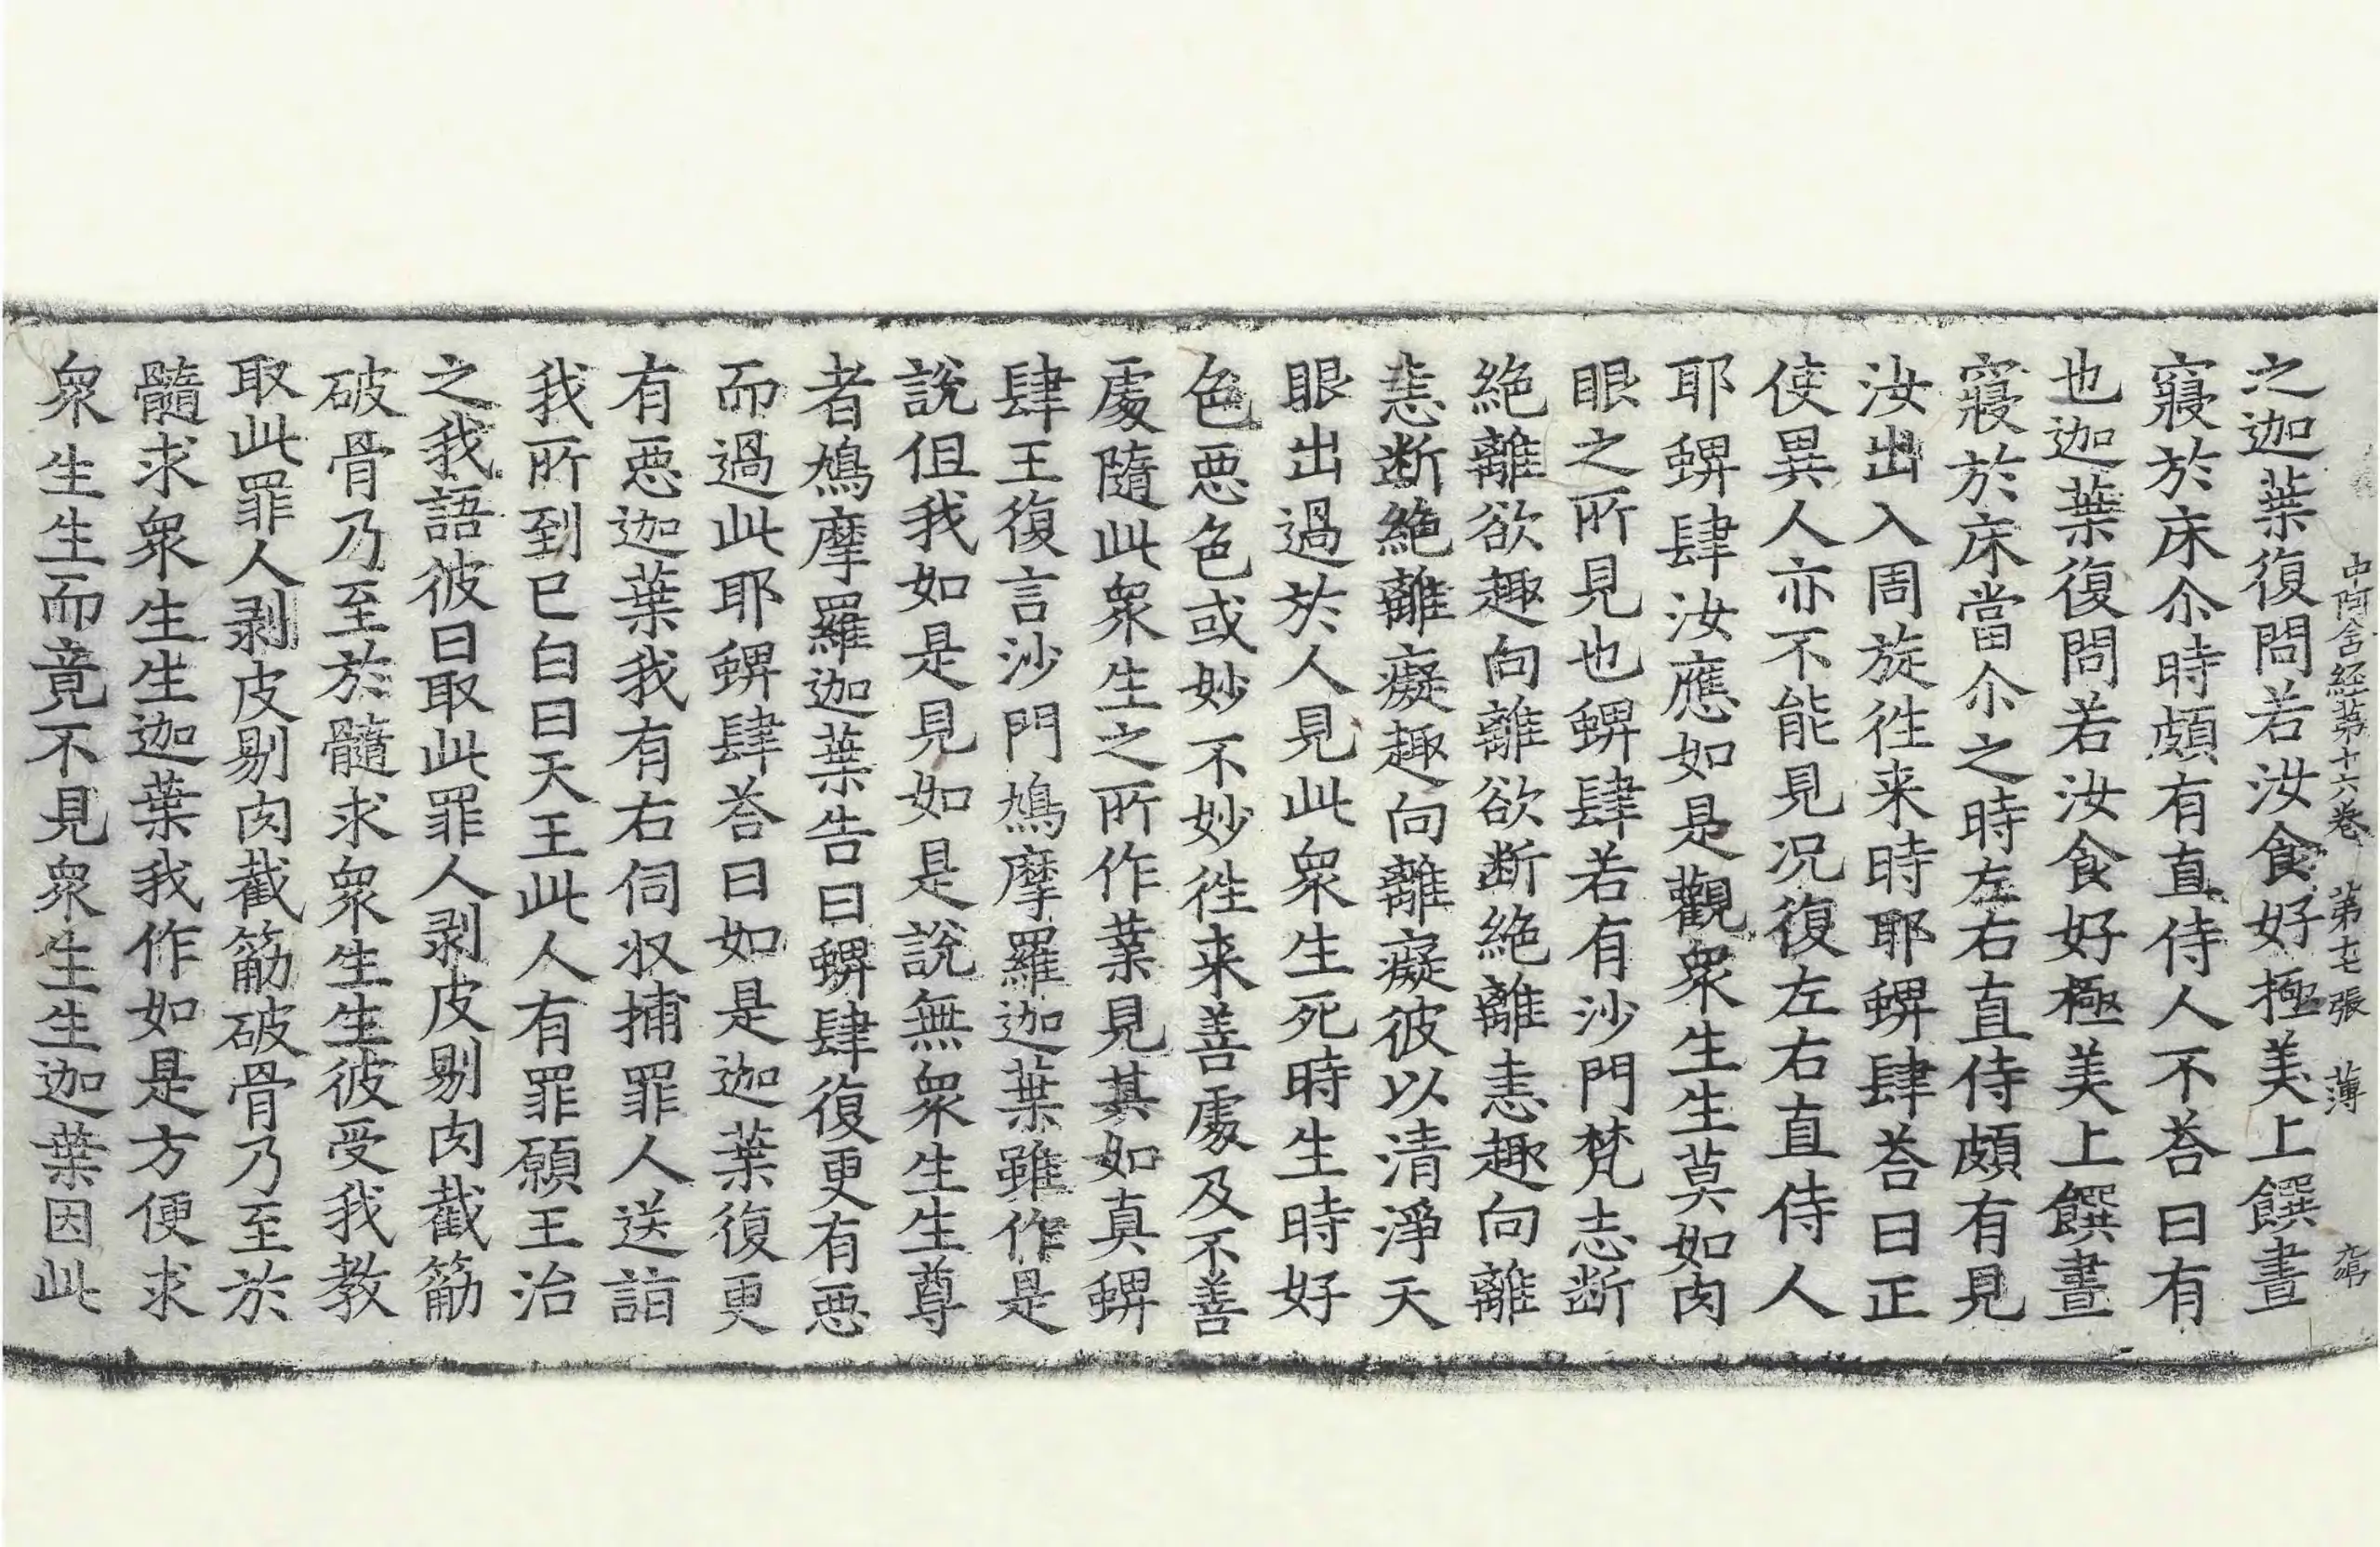 中阿含経苐十六卷 苐十七張 薄
之迦葉復問若汝食好極美上饌晝
寢於床尒時頗有直侍人不荅曰有
也迦葉復問若汝食好極美上饌晝
寢於床當尒之時左右直侍頗有見
汝出入周旋徃来時耶蜱肆荅曰正
使異人亦不能見況復左右直侍人
耶蜱肆汝應如是觀衆生生莫如肉
眼之所見也蜱肆若有沙門梵志断
絶離欲趣向離欲断絶離恚趣向離
恚断絶離癡趣向離癡彼以清淨天
眼出過於人見此衆生死時生時好
色惡色或妙不妙徃来善處及不善
處隨此衆生之所作業見其如真蜱
肆王復言沙門鳩摩羅迦葉雖作是
說但我如是見如是說無衆生生尊
者鳩摩羅迦葉告曰蜱肆復更有惡
而過此耶蜱肆荅曰如是迦葉復更
有惡迦葉我有右伺收捕罪人送詣
我所到已白曰天王此人有罪願王治
之我語彼曰取此罪人剥皮剔肉截筋
破骨乃至於髓求衆生生彼受我教
取此罪人剥皮剔肉截筋破骨乃至於
髓求衆生生迦葉我作如是方便求
衆生生而竟不見衆生生迦葉因此